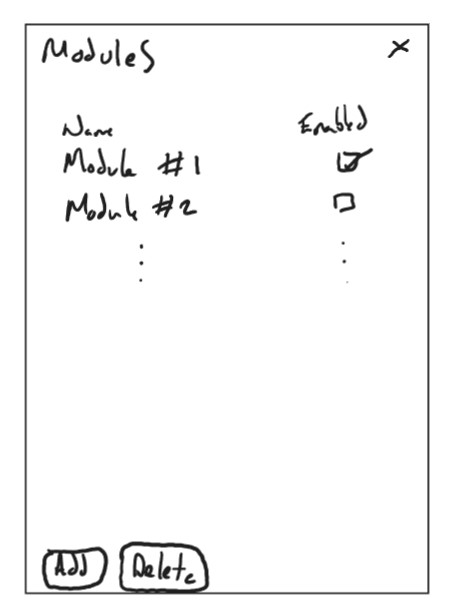 Modules X
Name Enabled
Module #1
Module #2
Add Delete